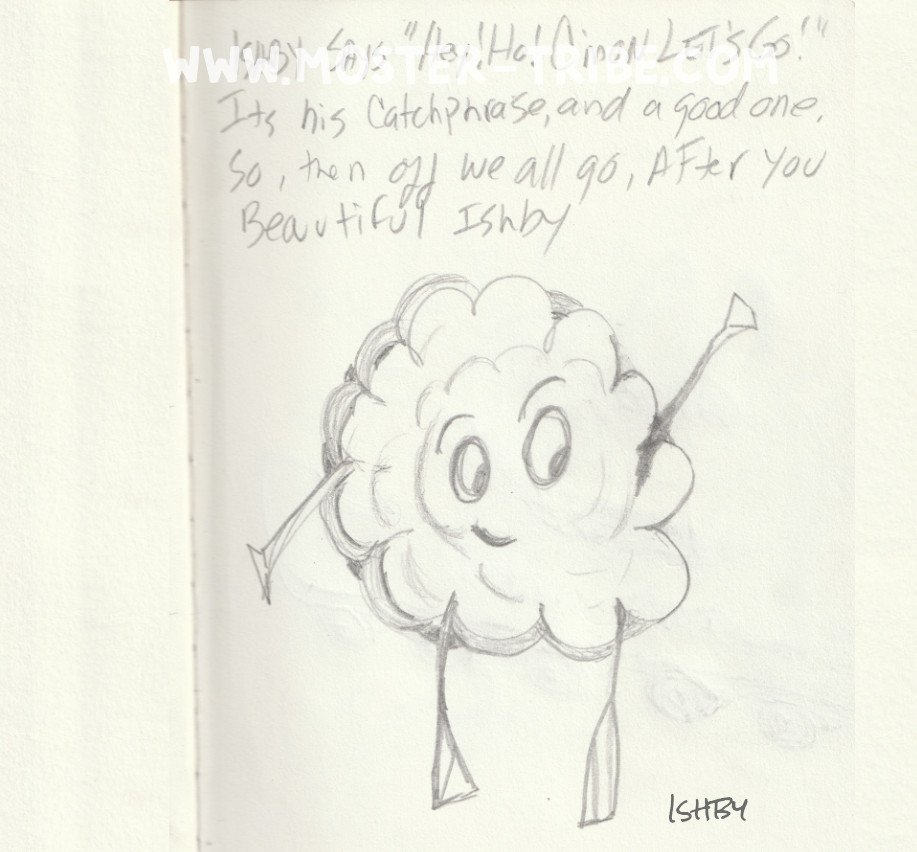 Ishby Says "Hey! Ho! C'mon LET'S Go!"
WWW.MOSTER-TRIBE.COM
Its his Catchphrase, and a good one.
So, then off we all go, AFter You
Beautiful Ishby
ISHBY